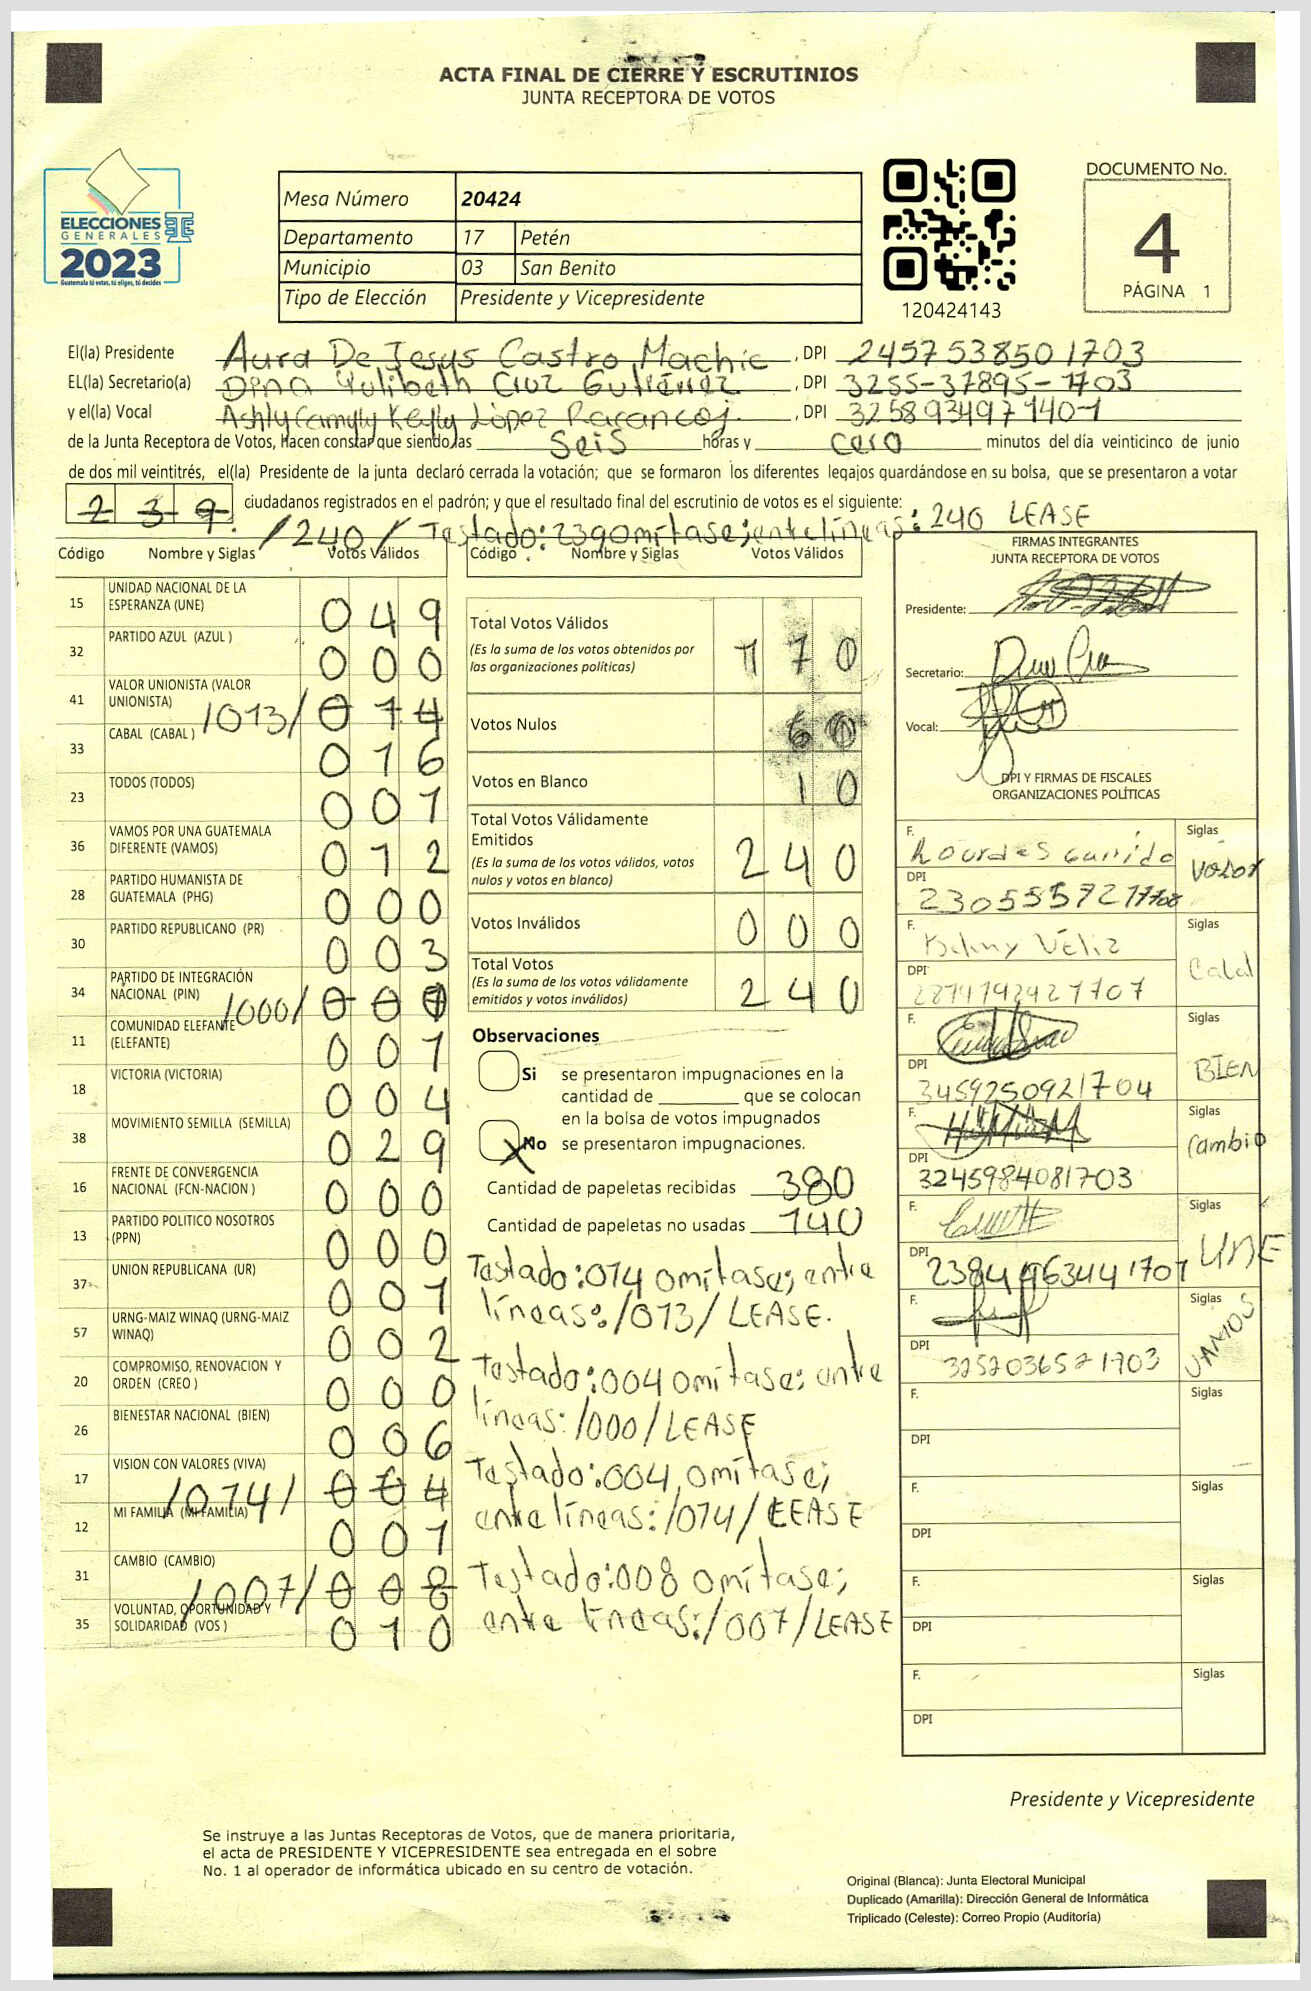 ACTA FINAL DE CIERRE Y ESCRUTINIOS
JUNTA RECEPTORA DE VOTOS
ELECCIONES
GENERALES
2023
Guatemala tú votas, tú eliges, tú decides
Mesa Número 20424
Departamento 17 Petén
Municipio 03 San Benito
Tipo de Elección Presidente y Vicepresidente
120424143
DOCUMENTO No.
4
PÁGINA 1
El(la) Presidente Aura De Jesus Castro Machic, DPI 2457538501703
EL(la) Secretario(a) Dina Yulibeth Cruz Gutiérrez, DPI 3255-37895-1703
y el(la) Vocal Ashly López, DPI 3258934971401
de la Junta Receptora de Votos, hacen constar que siendo las seis horas y cero minutos del día veinticinco de junio
de dos mil veintitrés, el(la) Presidente de la junta declaró cerrada la votación; que se formaron los diferentes legajos guardándose en su bolsa, que se presentaron a votar
239 ciudadanos registrados en el padrón; y que el resultado final del escrutinio de votos es el siguiente:
/240/ Testado:239 omítase; entre líneas: 240 LEASE
Código Nombre y Siglas Votos Válidos
15 UNIDAD NACIONAL DE LA ESPERANZA (UNE) 049
32 PARTIDO AZUL (AZUL ) 000
41 VALOR UNIONISTA (VALOR UNIONISTA) /013/ 014
33 CABAL (CABAL ) 016
23 TODOS (TODOS) 001
36 VAMOS POR UNA GUATEMALA DIFERENTE (VAMOS) 012
28 PARTIDO HUMANISTA DE GUATEMALA (PHG) 000
30 PARTIDO REPUBLICANO (PR) 003
34 PARTIDO DE INTEGRACIÓN NACIONAL (PIN) /000/ 00
11 COMUNIDAD ELEFANTE (ELEFANTE) 001
18 VICTORIA (VICTORIA) 004
38 MOVIMIENTO SEMILLA (SEMILLA) 029
16 FRENTE DE CONVERGENCIA NACIONAL (FCN-NACION ) 000
13 PARTIDO POLITICO NOSOTROS (PPN) 000
37 UNION REPUBLICANA (UR) 001
57 URNG-MAIZ WINAQ (URNG-MAIZ WINAQ) 002
20 COMPROMISO, RENOVACION Y ORDEN (CREO ) 000
26 BIENESTAR NACIONAL (BIEN) 006
17 VISION CON VALORES (VIVA) /014/ 004
12 MI FAMILIA (MI FAMILIA) 001
31 CAMBIO (CAMBIO) /007/ 008
35 VOLUNTAD, OPORTUNIDAD Y SOLIDARIDAD (VOS ) 010
Código Nombre y Siglas Votos Válidos
Total Votos Válidos 170
(Es la suma de los votos obtenidos por
las organizaciones políticas)
Votos Nulos 60
Votos en Blanco 10
Total Votos Válidamente
Emitidos 240
(Es la suma de los votos válidos, votos
nulos y votos en blanco)
Votos Inválidos 000
Total Votos 240
(Es la suma de los votos válidamente
emitidos y votos inválidos)
Observaciones
Si se presentaron impugnaciones en la
cantidad de ________ que se colocan
en la bolsa de votos impugnados
X No se presentaron impugnaciones.
Cantidad de papeletas recibidas 380
Cantidad de papeletas no usadas 140
Testado:014 omítase; entre
líneas:/013/LEASE.
Testado:004 omítase; entre
líneas:/000/LEASE
Testado:004 omítase;
entre líneas:/014/LEASE
Testado:008 omítase;
entre líneas:/007/LEASE
FIRMAS INTEGRANTES
JUNTA RECEPTORA DE VOTOS
Presidente:
Secretario:
Vocal:
DPI Y FIRMAS DE FISCALES
ORGANIZACIONES POLÍTICAS
F. Lourdes Garrido Siglas Valor
DPI 230555721
F. Véliz Siglas Cabal
DPI 2871792421707
F. Siglas BIEN
DPI 3459250921704
F. Siglas Cambio
DPI 3245984081703
F. Siglas UNE
DPI
F. Siglas VAMOS
DPI 3252036521703
F. Siglas
DPI
F. Siglas
DPI
F. Siglas
DPI
F. Siglas
DPI
Presidente y Vicepresidente
Se instruye a las Juntas Receptoras de Votos, que de manera prioritaria,
el acta de PRESIDENTE Y VICEPRESIDENTE sea entregada en el sobre
No. 1 al operador de informática ubicado en su centro de votación.
Original (Blanca): Junta Electoral Municipal
Duplicado (Amarilla): Dirección General de Informática
Triplicado (Celeste): Correo Propio (Auditoría)